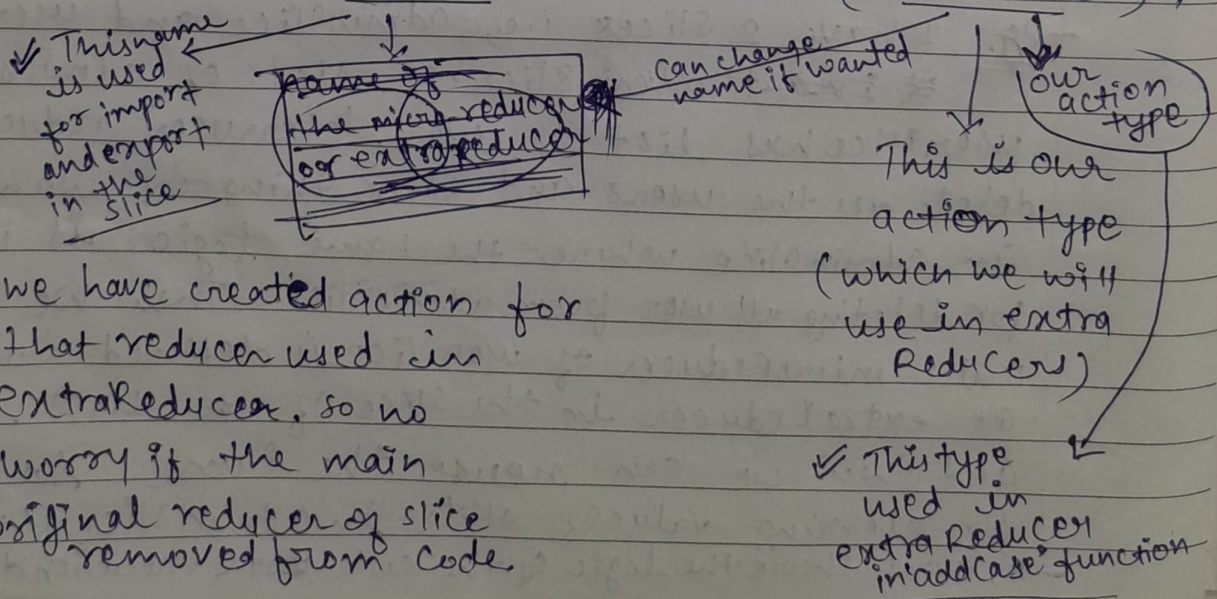 ✓ This name
is used
for import
and export
in the
slice
name of
the micro reducer
or extra reducer
can change
name if wanted
our
action
type
This is our
action type
(which we will
use in extra
Reducers)
we have created action for
that reducer used in
extraReducer. so no
worry if the main
original reducer of slice
removed from code.
✓ This type
used in
extraReducer
in "addCase" function